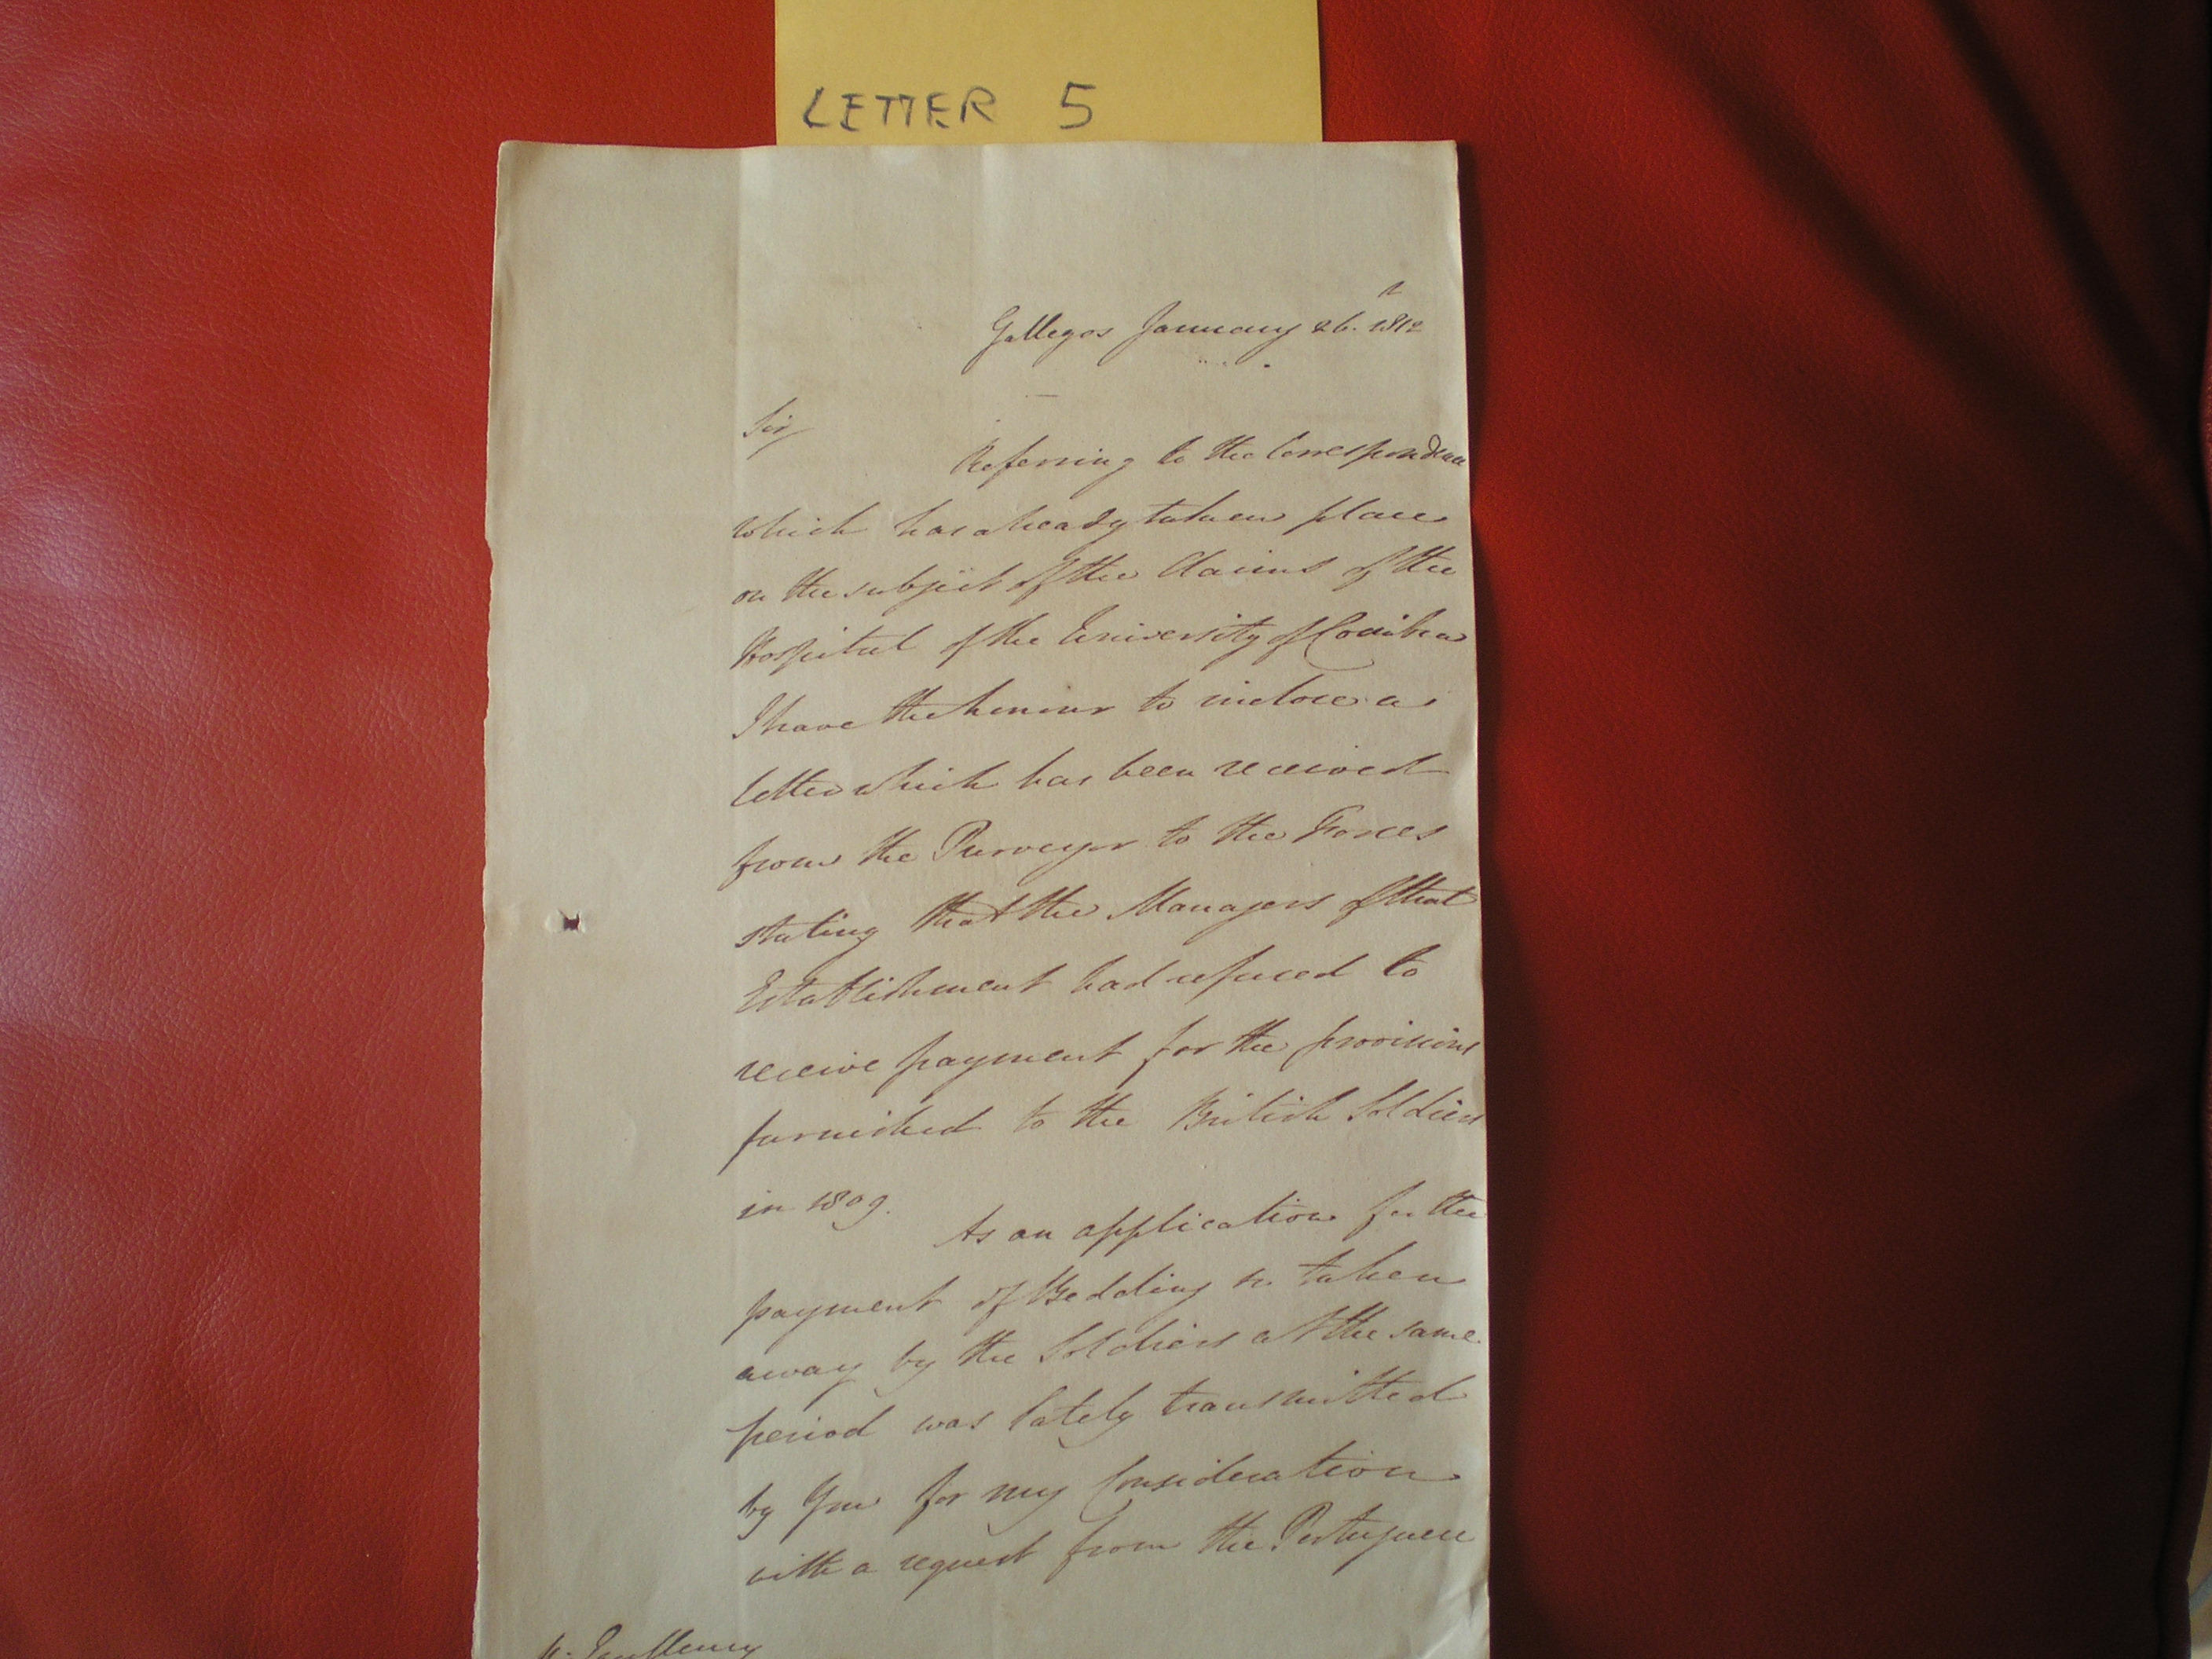 LETTER 5
Gallegos January 26. 1812
Sir/
Referring to the Correspondence
which has already taken place
on the subject of the Claims of the
Hospital of the University of Coimbra
I have the honour to inclose a
letter which has been received
from the Purveyor to the Forces
stating that the Managers of that
Establishment had refused to
receive payment for the provisions
furnished to the British Soldiers
in 1809.
As an application for the
payment of Bedding &c. taken
away by the Soldiers at the same
period was lately transmitted
by You for my Consideration
with a request from the Portuguese